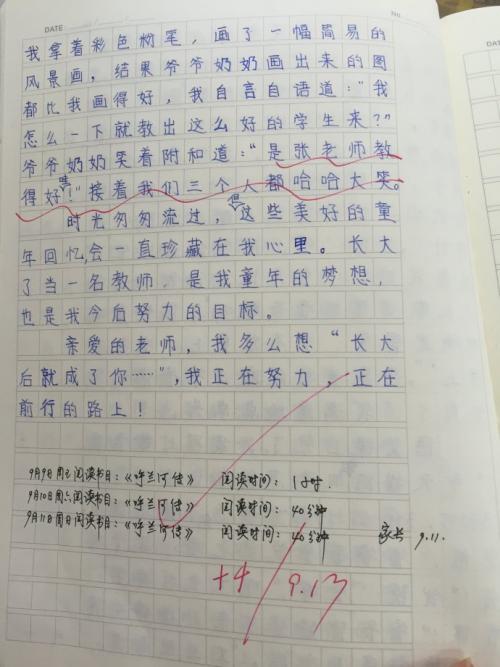 DATE
No
我拿着彩色粉笔，画了一幅简易的
风景画，结果爷爷奶奶画出来的图
都比我画得好，我自言自语道："我
怎么一下就教出这么好的学生来？"
爷爷奶奶笑着附和道："是张老师教
得好哇！"接着我们三个人都哈哈大笑。
时光匆匆流过，但这些美好的童
年回忆,会一直珍藏在我心里。长大
了当一名教师，是我童年的梦想，
也是我今后努力的目标。
亲爱的老师，我多么想"长大
后就成了你……"，我正在努力，正在
前行的路上！
9月9日 周五 阅读书目：《呼兰河传》 阅读时间：1小时．
9月10日 周六 阅读书目：《呼兰河传》 阅读时间：40分钟
9月11日 周日 阅读书目：《呼兰河传》 阅读时间：40分钟 家长 9.11.
+4 9.13